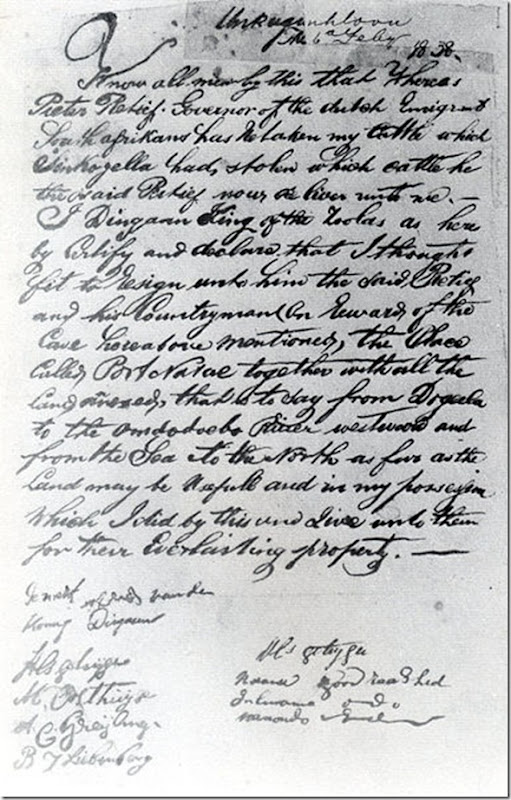 Unkunginhloou
the 6th Feby 1838.
Know all men by this that Whereas
Pieter Retief Governor of the dutch Emigrant
South afrikans has Retaken my Cattle which
Sinkogella had stolen which cattle he
the said Retief now deliver unto me. —
I Dingaan King of the Zoolas as here
by Certify and declare that I thought
fit to Resign unto him the said Retief
and his Countrymen (on Reward of the
Case hereabove mentioned) the Place
Called Port Natal together with all the
Land annexed, that is to say from Dogeela
to the Omsoboebo River westward and
from the Sea to the North as far as the
Land may be Usefull and in my possession
Which I did by this and Give unto them
for their Everlasting property. —
De merk van den
Koning Dingaan
Als getuigen
M Oosthuyse
A C Greyling
B J Liebenberg
Als getuigen
Moaro groot raadslid
Juliavius do
Manondo